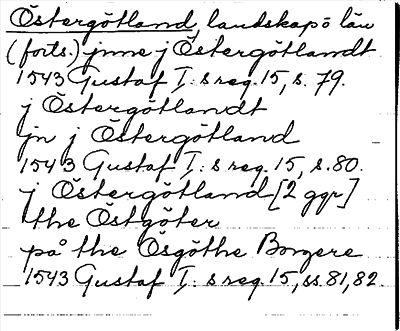 Östergötland, landskap o län
(forts.) jnne j Östergötlandt
1543 Gustaf I:s reg. 15, s. 79.
j Östergötlandt
jn j Östergötland
1543 Gustaf I:s reg. 15, s. 80.
j Östergötland [2 ggr]
the Östgöter
på the Osgöthe Borgere
1543 Gustaf I:s reg. 15, ss. 81, 82